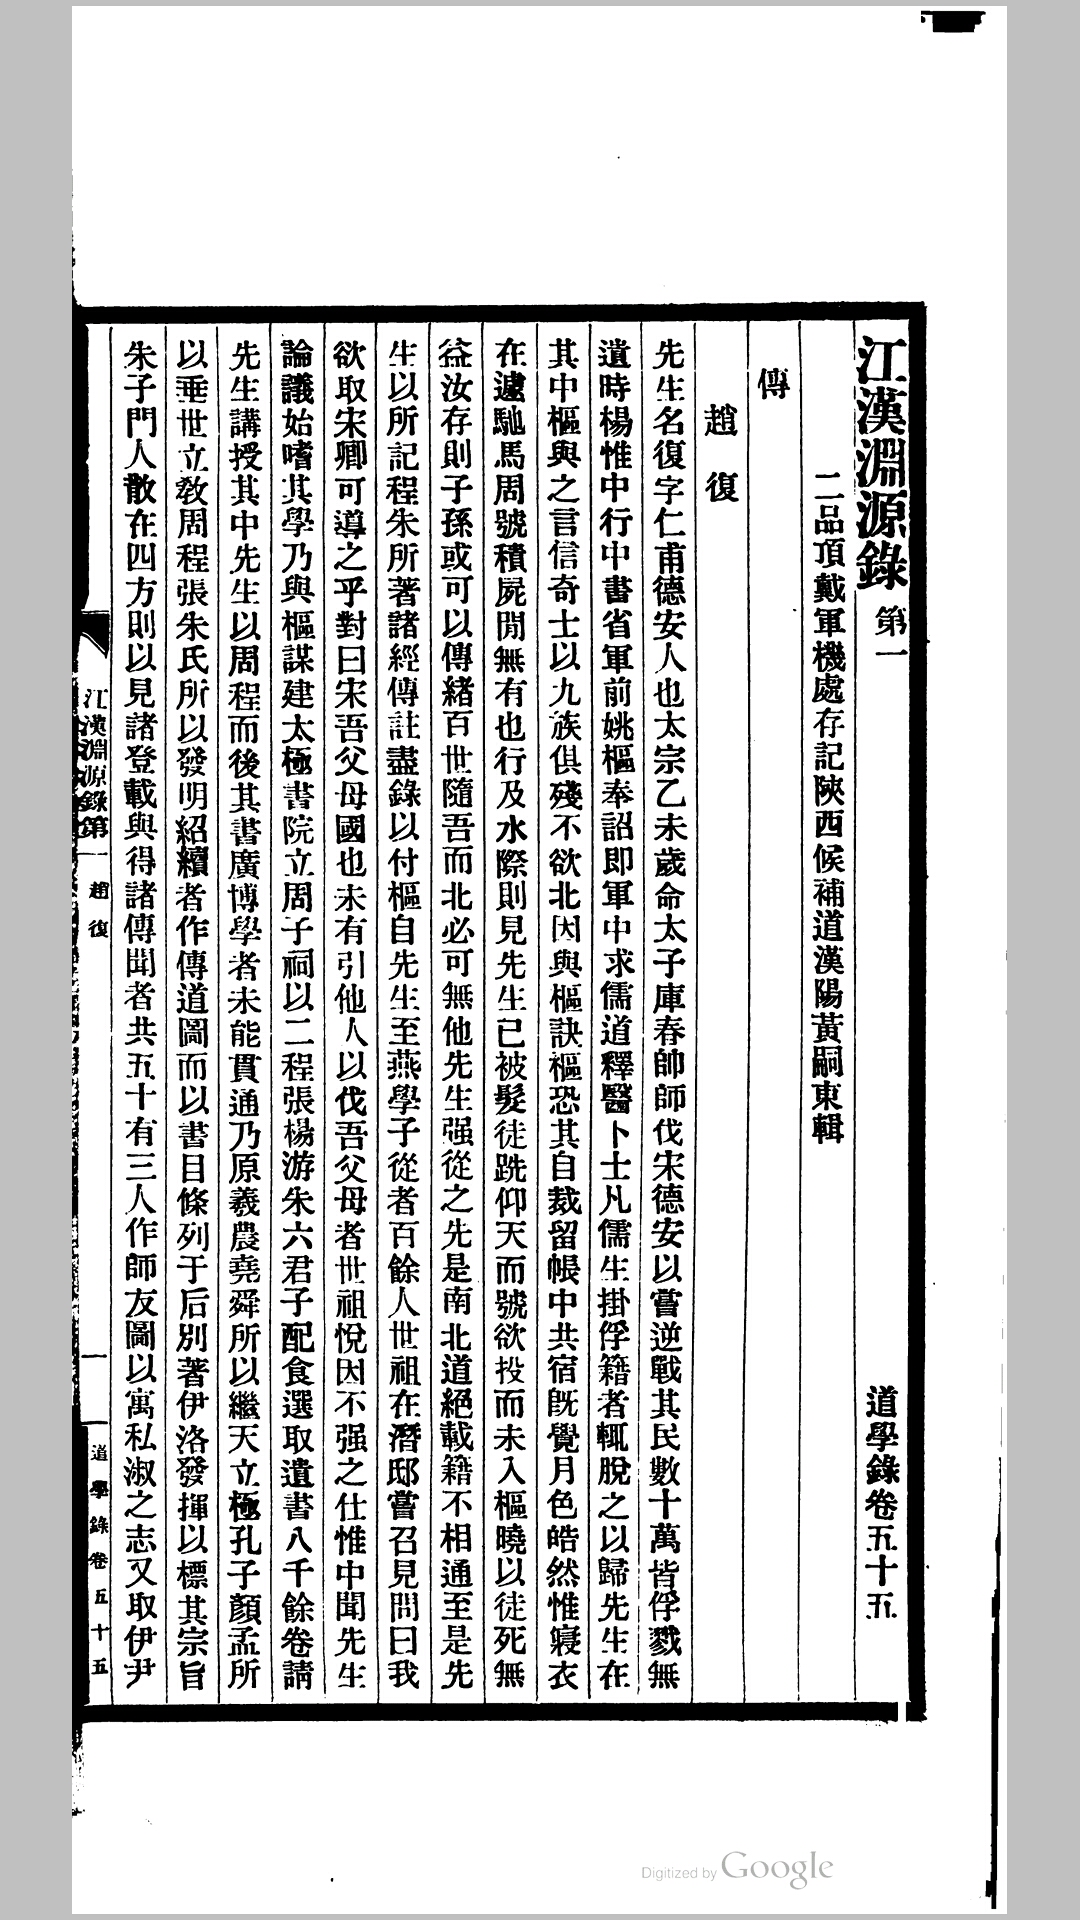 江漢淵源錄第一　道學錄卷五十五
二品頂戴軍機處存記陝西候補道漢陽黃嗣東輯
傳
趙復
先生名復字仁甫德安人也太宗乙未歲命太子庫春帥師伐宋德安以嘗逆戰其民數十萬皆俘戮無
遺時楊惟中行中書省軍前姚樞奉詔即軍中求儒道釋醫卜士凡儒生掛俘籍者輒脫之以歸先生在
其中樞與之言信奇士以九族俱殘不欲北因與樞訣樞恐其自裁留帳中共宿既覺月色皓然惟寢衣
在遽馳馬周號積屍間無有也行及水際則見先生已被髮徒跣仰天而號欲投而未入樞曉以徒死無
益汝存則子孫或可以傳緒百世隨吾而北必可無他先生强從之先是南北道絕載籍不相通至是先
生以所記程朱所著諸經傳註盡錄以付樞自先生至燕學子從者百餘人世祖在潛邸嘗召見問曰我
欲取宋卿可導之乎對曰宋吾父母國也未有引他人以伐吾父母者世祖悅因不强之仕惟中聞先生
論議始嗜其學乃與樞謀建太極書院立周子祠以二程張楊游朱六君子配食選取遺書八千餘卷請
先生講授其中先生以周程而後其書廣博學者未能貫通乃原羲農堯舜所以繼天立極孔子顏孟所
以垂世立教周程張朱氏所以發明紹續者作傳道圖而以書目條列于后別著伊洛發揮以標其宗旨
朱子門人散在四方則以見諸登載與得諸傳聞者共五十有三人作師友圖以寓私淑之志又取伊尹
江漢淵源錄第一　趙復　一　道學錄卷五十五
Digitized by Google